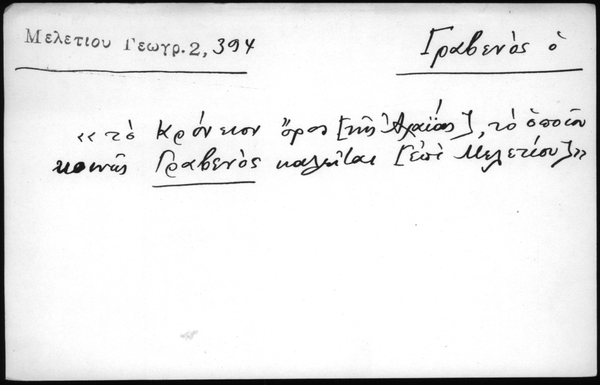 Μελετίου Γεωγρ. 2, 394
Γραβενὸς ὁ
«τὸ Κρόνειον ὄρος [τῆς Ἀχαΐας], τὸ ὁποῖον
κοινῶς Γραβενὸς καλεῖται [ἐπὶ Μελετίου]»